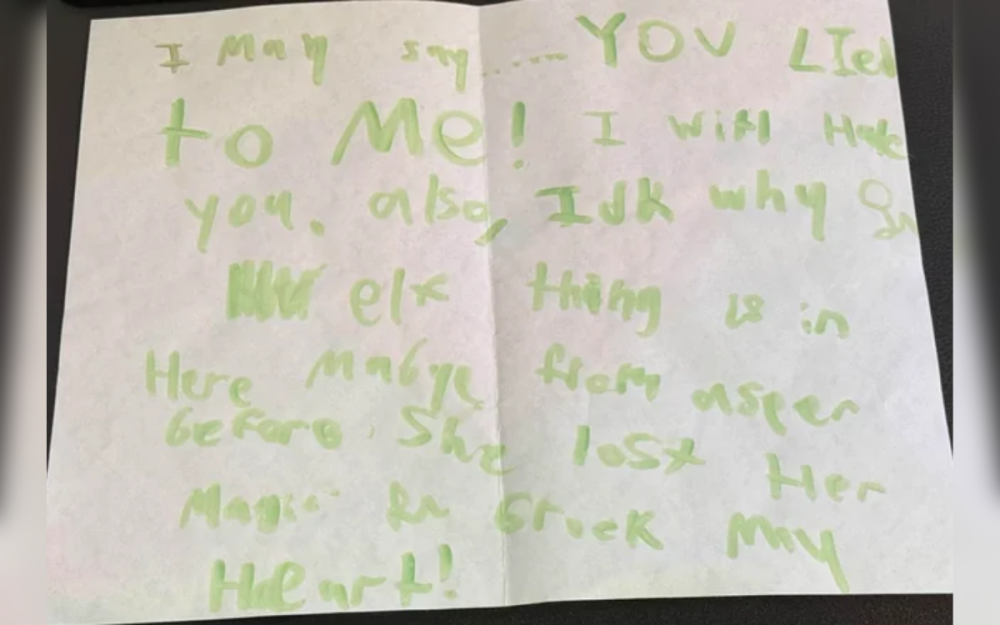 I May say...... YOU LIed
to Me! I will Hate
you. also, Idk why
elx thing is in
Here Mabye from aspen
before She lost Her
Magic Bröck may
Heart!